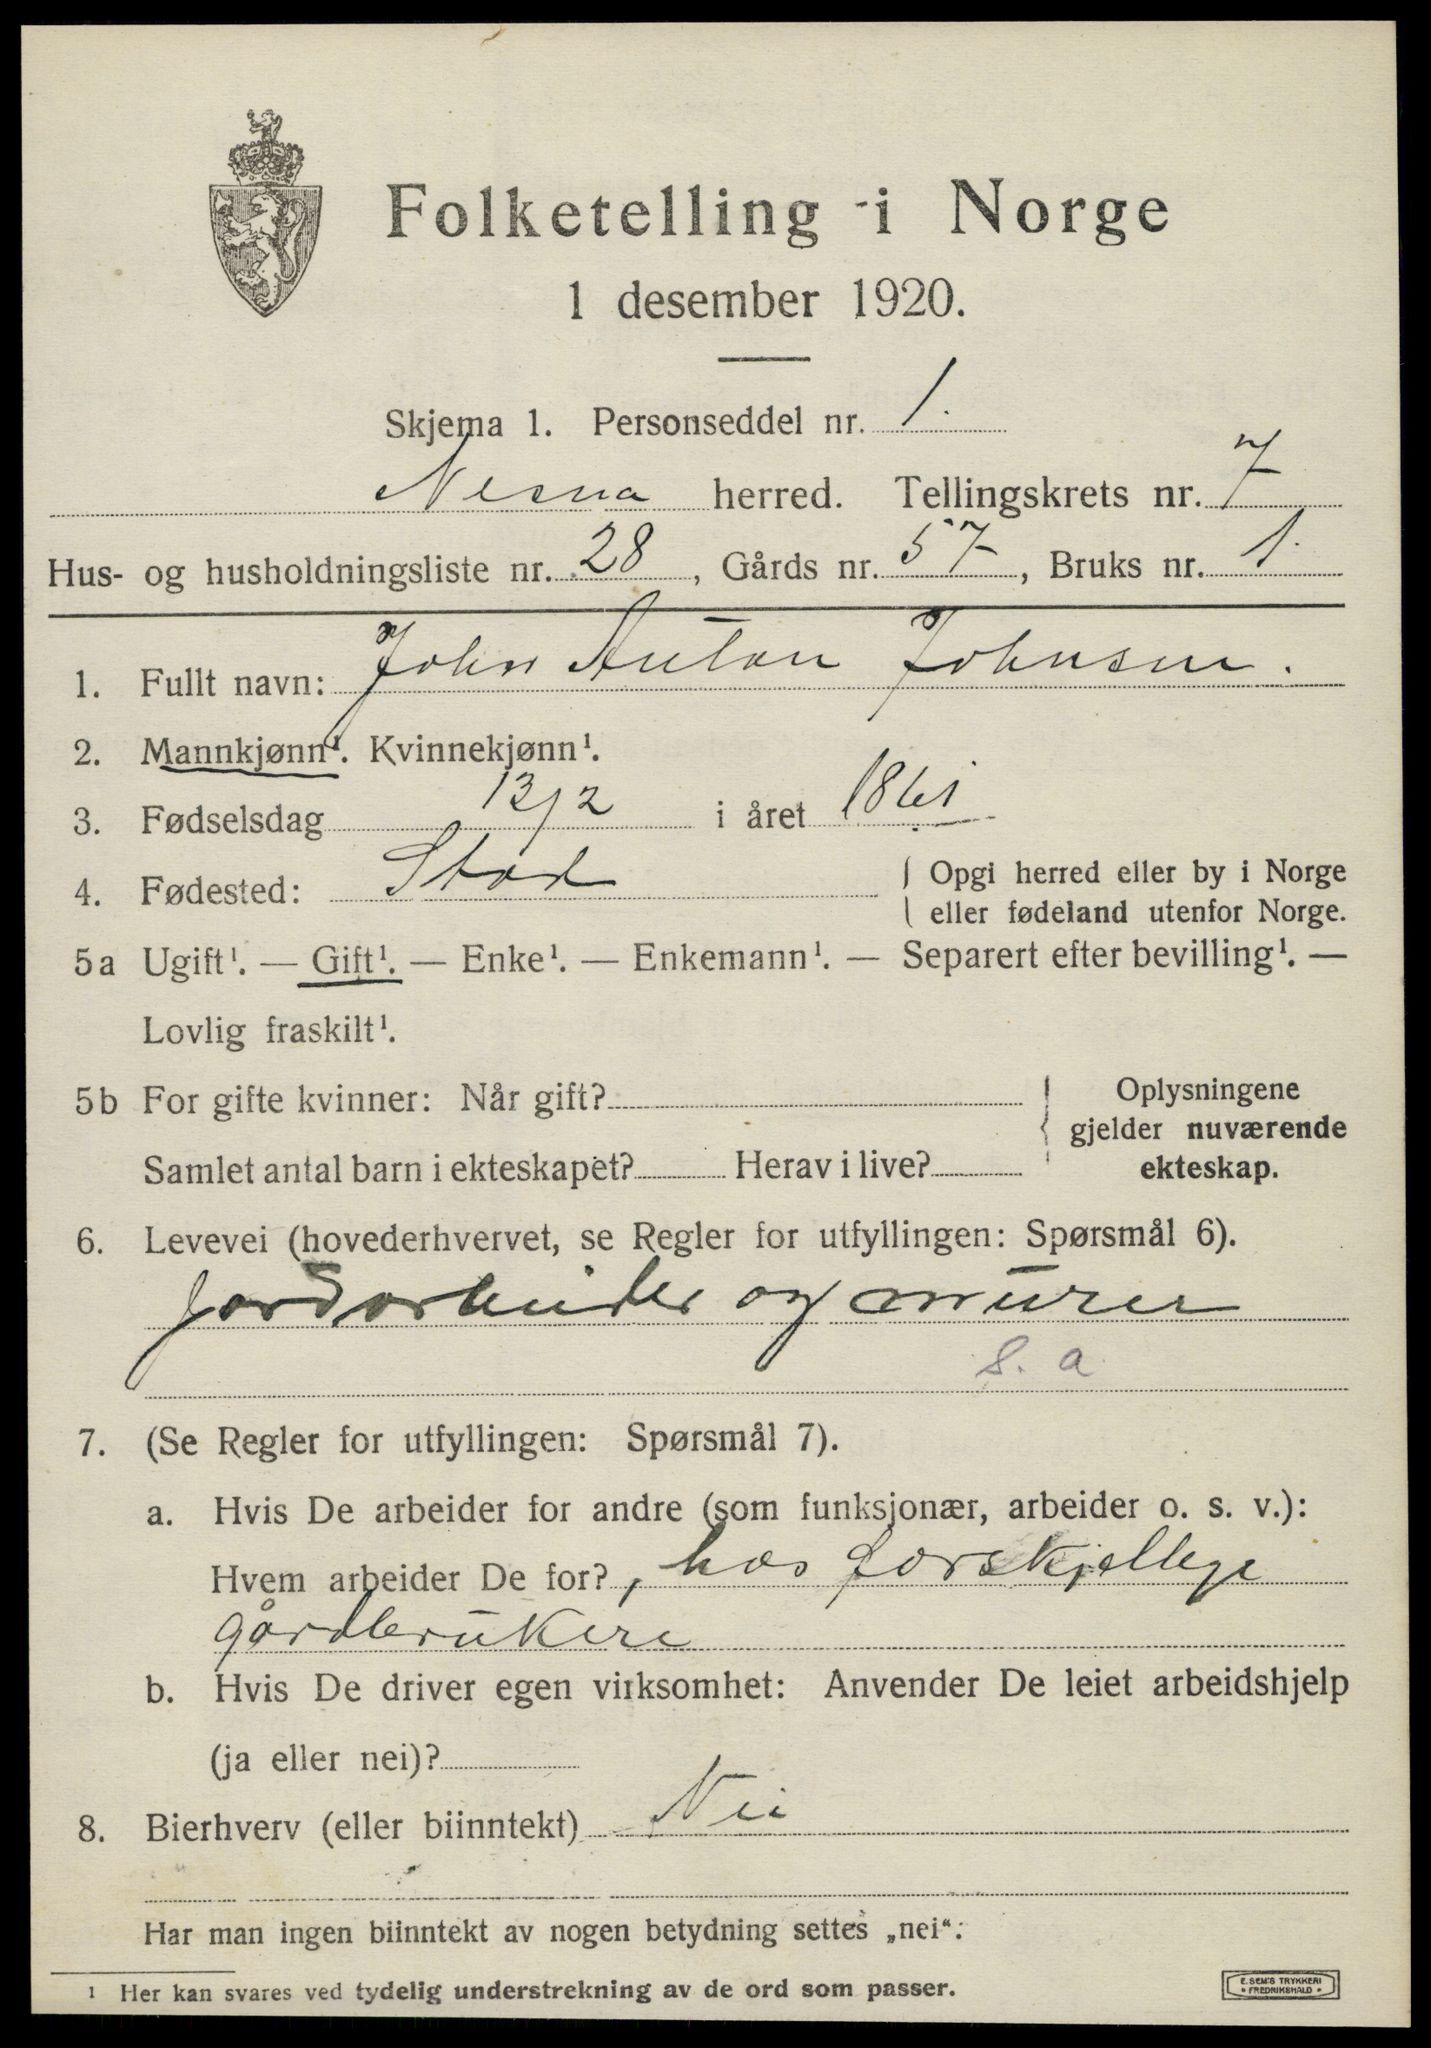 Folketelling i Norge
1 desember 1920.
Skjema 1. Personseddel nr. 1.
Nesna herred. Tellingskrets nr. 7
Hus- og husholdningsliste nr. 28, Gårds nr. 57, Bruks nr. 1.
1. Fullt navn: John Anton Johnsen.
2. Mannkjønn¹. Kvinnekjønn¹.
3. Fødselsdag 13/2 i året 1861
4. Fødested: Stod { Opgi herred eller by i Norge
eller fødeland utenfor Norge.
5a Ugift¹. — Gift¹. — Enke¹. — Enkemann¹. — Separert efter bevilling¹. —
Lovlig fraskilt¹.
5b For gifte kvinner: Når gift? { Oplysningene
gjelder nuværende
Samlet antal barn i ekteskapet? Herav i live? ekteskap.
6. Levevei (hovederhvervet, se Regler for utfyllingen: Spørsmål 6).
jordarbeider og murer
S. a
7. (Se Regler for utfyllingen: Spørsmål 7).
a. Hvis De arbeider for andre (som funksjonær, arbeider o. s. v.):
Hvem arbeider De for?, hos forskjellige
gårdbrukere
b. Hvis De driver egen virksomhet: Anvender De leiet arbeidshjelp
(ja eller nei)?
8. Bierhverv (eller biinntekt) Nei
Har man ingen biinntekt av nogen betydning settes „nei“:
¹ Her kan svares ved tydelig understrekning av de ord som passer.
E. SEM'S TRYKKERI
* FREDRIKSHALD *